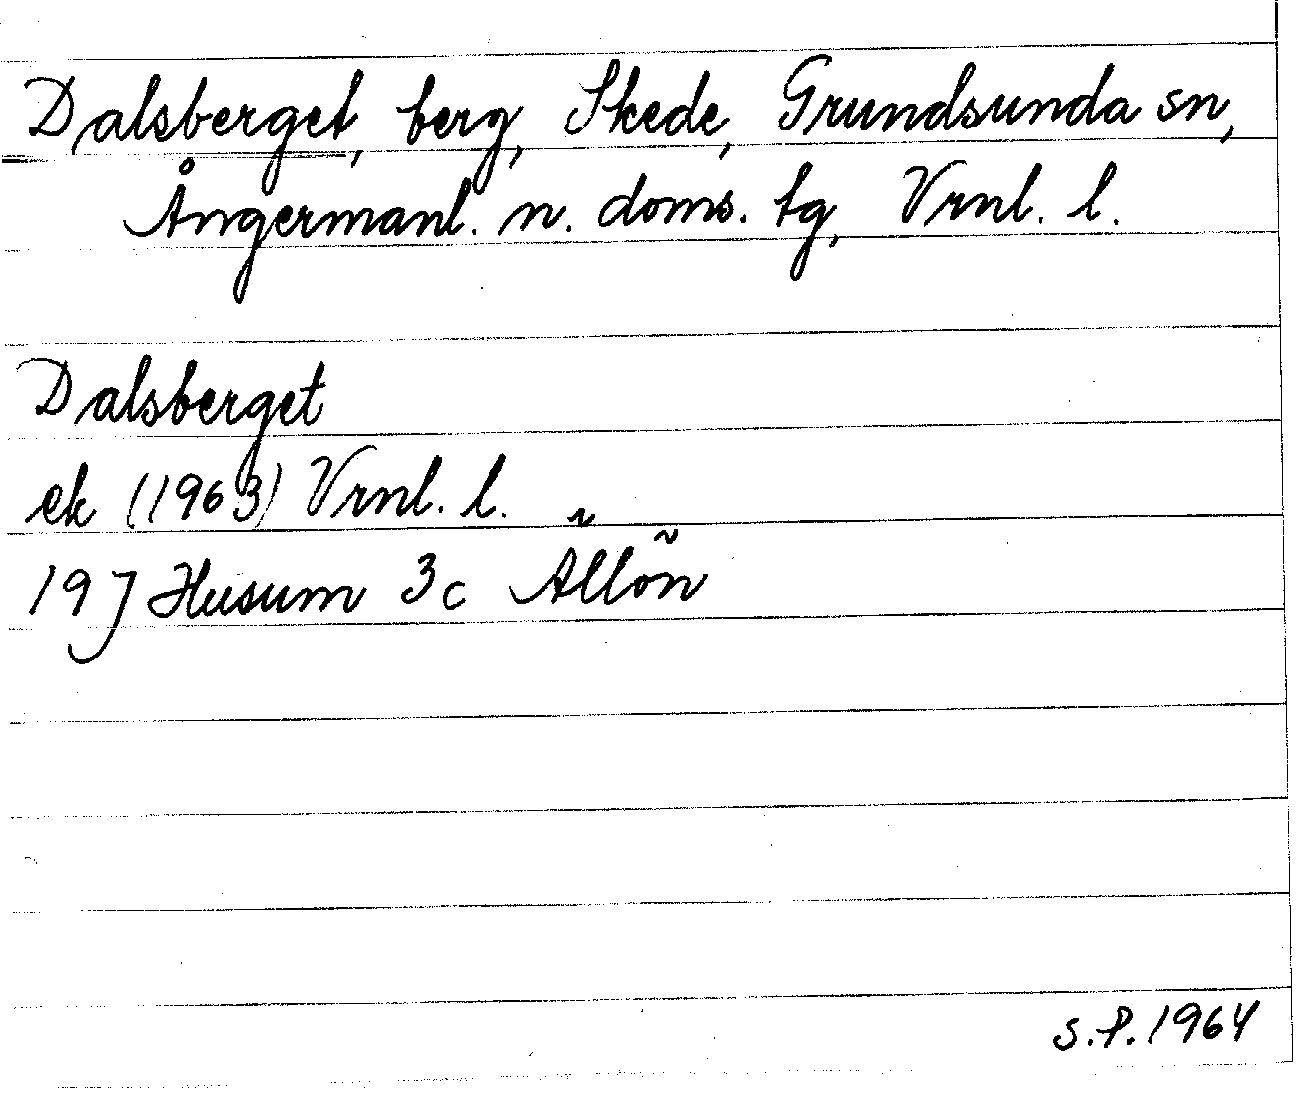 Dalsberget, berg, Skede, Grundsunda sn,
Ångermanl. n. doms. tg, Vrnl. l.
Dalsberget
ek (1963) Vrnl. l.
19 J Husum 3c Ãllõn
S.P. 1964